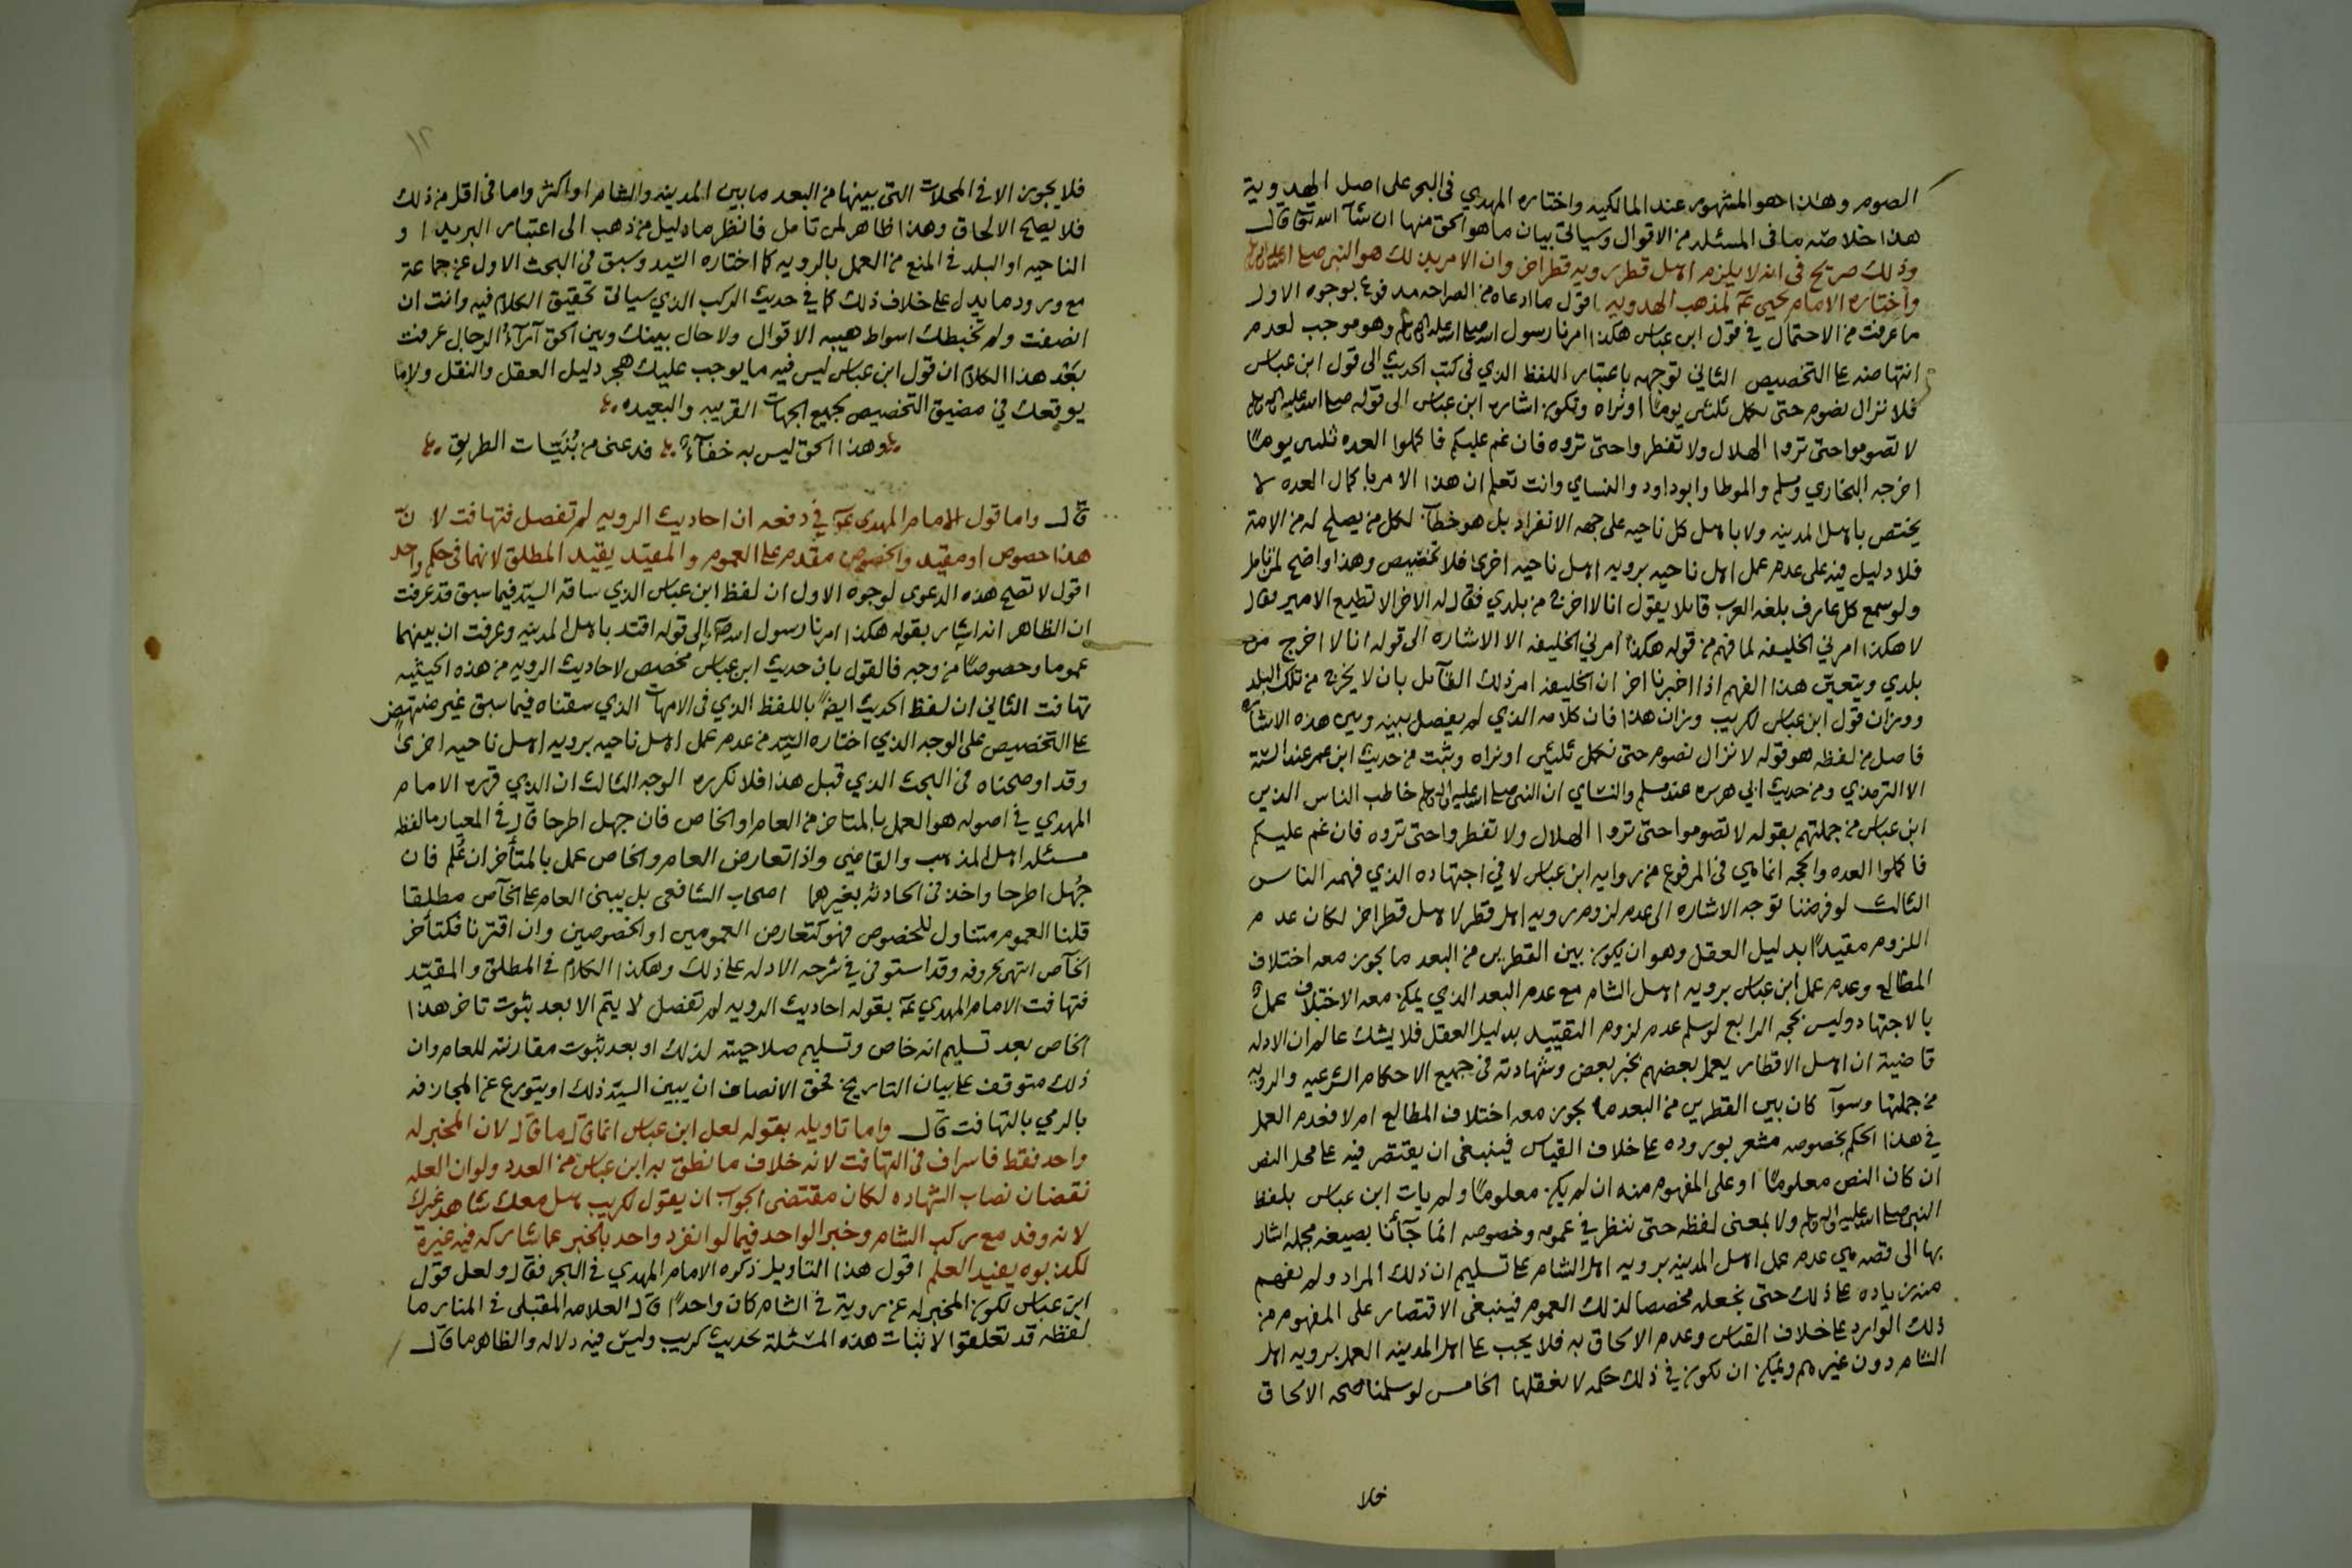 الصوم وهذا هو المشهور عند المالكيه واختاره المهدي في البحر على اصل الهدوية
هذا خلاصة ما في المسئله من الاقوال وسياتي بيان ما هو الحق منها ان شآ الله تعالى قال
وذلك صريح في انه لا يلزم اهل قطر برويه قطر اخر وان الامر بذلك هو النبي صلى الله عليه واله وسلم
واختاره الامام يحيى عم لمذهب الهدويه اقول ما ادعاه من الصراحه مدفوع بوجوه الاول
ما عرفت من الاحتمال في قول ابن عباس هكذا امرنا رسول الله صلى الله عليه واله وسلم وهو موجب لعدم
انتهاضه على التخصيص الثاني توجهه باعتبار اللفظ الذي في كتب الحديث الى قول ابن عباس
فلا نزال نصوم حتى نكمل ثلثين يوما او نراه وتكون اشارة ابن عباس الى قوله صلى الله عليه واله وسلم
لا تصوموا حتى تروا الهلال ولا تفطروا حتى تروه فان غم عليكم فاكملوا العده ثلثين يوما
اخرجه البخاري ومسلم والموطا وابوداود والنساي وانت تعلم ان هذا الامر باكمال العده لا
يختص باهل المدينه ولا باهل كل ناحيه على جهه الانفراد بل هو خطاب لكل من يصلح له من الامة
فلا دليل فيه على عدم عمل اهل ناحيه برويه اهل ناحيه اخرى فلا تخصيص وهذا واضح لمن تامل
ولو سمع كل عارف بلغه العرب قايلا يقول انا لا اخرج من بلدي فقال له الاخر الا تطيع الامير فقال
لا هكذا امرني الخليفه لما فهم من قوله هكذا امرني الخليفه الا الاشاره الى قوله انا لا اخرج من
بلدي ويتعين هذا الفهم اذا اخبرنا اخر ان الخليفه امر ذلك القآئل بان لا يخرج من تلك البلد
ووزان قول ابن عباس لكريب وزان هذا فان كلامه الذي لم يفصل بينه وبين هذه الاشاره
فاصل من لفظه هو قوله لا نزال نصوم حتى نكمل ثلثين او نراه وثبت من حديث ابن عمر عند الستة
الا الترمذي ومن حديث ابي هريره عند مسلم والنساي ان النبي صلى الله عليه واله وسلم خاطب الناس الذين
ابن عباس من جملتهم بقوله لا تصوموا حتى تروا الهلال ولا تفطروا حتى تروه فان غم عليكم
فاكملوا العده والحجه انما هي في المرفوع من روايه ابن عباس لا في اجتهاده الذي فهمه الناس
الثالث لو فرضنا توجه الاشاره الى عدم لزوم رويه اهل قطر لاهل قطر اخر لكان عدم
اللزوم مقيدا بدليل العقل وهو ان يكون بين القطرين من البعد ما يجوز معه اختلاف
المطالع وعدم عمل ابن عباس برويه اهل الشام مع عدم البعد الذي يمكن معه الاختلاف عمل
بالاجتهاد وليس بحجه الرابع لو سلم عدم لزوم التقييد بدليل العقل فلا يشك عالم ان الادله
قاضية ان اهل الاقطار يعمل بعضهم بخبر بعض وشهادته في جميع الاحكام الشرعيه والرويه
من جملتها وسوآ كان بين القطرين من البعد ما يجوز معه اختلاف المطالع ام لا فعدم العمل
في هذا الحكم بخصوصه مشعر بوروده على خلاف القياس فينبغي ان يقتصر فيه على محل النص
ان كان النص معلوما او على المفهوم منه ان لم يكن معلوما ولم يات ابن عباس بلفظ
النبي صلى الله عليه واله وسلم ولا بمعنى لفظه حتى ننظر في عمومه وخصوصه انما جآئنا بصيغه مجمله اشار
بها الى قصه هي عدم عمل اهل المدينه برويه اهل الشام على تسليم ان ذلك المراد ولم نفهم
منه زياده على ذلك حتى نجعله مخصصا لذلك العموم فينبغي الاقتصار على المفهوم من
ذلك الوارد على خلاف القياس وعدم الالحاق به فلا يجب على اهل المدينه العمل برويه اهل
الشام دون غيرهم ويمكن ان تكون في ذلك حكمه لا نعقلها الخامس لو سلمنا صحه الالحاق
فلا
١٢
فلا يجوز الا في المحلات التي بينها من البعد ما بين المدينه والشام او اكثر واما في اقل من ذلك
فلا يصح الالحاق وهذا ظاهر لمن تامل فانظر ما دليل من ذهب الى اعتبار البريد او
الناحيه او البلد في المنع من العمل بالرويه كما اختاره السيد وسبق في البحث الاول عن جماعة
مع ورود ما يدل على خلاف ذلك كما في حديث الركب الذي سياتي تحقيق الكلام فيه وانت ان
انصفت ولم تخبطك اسواط هيبه الاقوال ولا حال بينك وبين الحق آرآء الرجال عرفت
بعد هذا الكلام ان قول ابن عباس ليس فيه ما يوجب عليك هجر دليل العقل والنقل ولا ما
يوقعك في مضيق التخصيص بجميع الجهات القريبه والبعيده
وهذا الحق ليس به خفآء فدعني من بُنيّات الطريق
قال واما قول الامام المهدي عم في دفعه ان احاديث الرويه لم تفصل فتهافت لان
هذا خصوص او مقيد والخصوص مقدم على العموم والمقيد يقيد المطلق لانهما في حكم واحد
اقول لا تصح هذه الدعوى لوجوه الاول ان لفظ ابن عباس الذي ساقه السيد فيما سبق قد عرفت
ان الظاهر انه اشار بقوله هكذا امرنا رسول الله صلى الى قوله اقتد باهل المدينه وعرفت ان بينهما
عموما وخصوصا من وجه فالقول بان حديث ابن عباس مخصص لاحاديث الرويه من هذه الحيثيه
تهافت الثاني ان لفظ الحديث ايضا باللفظ الذي في الامهات الذي سقناه فيما سبق غير منتهض
على التخصيص على الوجه الذي اختاره السيد من عدم عمل اهل ناحيه برويه اهل ناحيه اخرى
وقد اوضحناه في البحث الذي قبل هذا فلا نكرره الوجه الثالث ان الذي قرره الامام
المهدي في اصوله هو العمل بالمتاخر من العام او الخاص فان جهل اطرحا قال في المعيار ما لفظه
مسئله اهل المذهب والقاضي واذا تعارض العام والخاص عمل بالمتأخر ان عُلم فان
جُهل اطرحا واخذ في الحادثه بغيرهما اصحاب الشافعي بل يبنى العام على الخآص مطلقا
قلنا العموم متناول للخصوص فهو كتعارض العمومين او الخصوصين وان اقترنا فكتأخر
الخآص انتهى بحروفه وقد استوفى في شرحه الادله على ذلك وهكذا الكلام في المطلق والمقيد
فتهافت الامام المهدي عم بقوله احاديث الرويه لم تفصل لا يتم الا بعد ثبوت تاخر هذا
الخاص بعد تسليم انه خاص وتسليم صلاحيته لذلك او بعد ثبوت مقارنته للعام وان
ذلك متوقف على بيان التاريخ فحق الانصاف ان يبين السيد ذلك او يتورع عن المجازفه
بالرمي بالتهافت قال واما تاويله بقوله لعل ابن عباس انما قال ما قال لان المخبر له
واحد فقط فاسراف في التهافت لانه خلاف ما نطق به ابن عباس من العدد ولو ان العله
نقصان نصاب الشهاده لكان مقتضى الجواب ان يقول لكريب هل معك شاهد غيرك
لانه وفد مع ركب الشام وخبر الواحد فيما لو انفرد واحد بالخبر عما شاركه فيه غيره
لكذبوه يفيد العلم اقول هذا التاويل ذكره الامام المهدي في البحر فقال ولعل قول
ابن عباس لكون المخبر له عن روية في الشام كان واحدا قال العلامه المقبلي في المنار ما
لفظه قد تعلقوا لاثبات هذه المسئلة بحديث كريب وليس فيه دلاله والظاهر ما قال